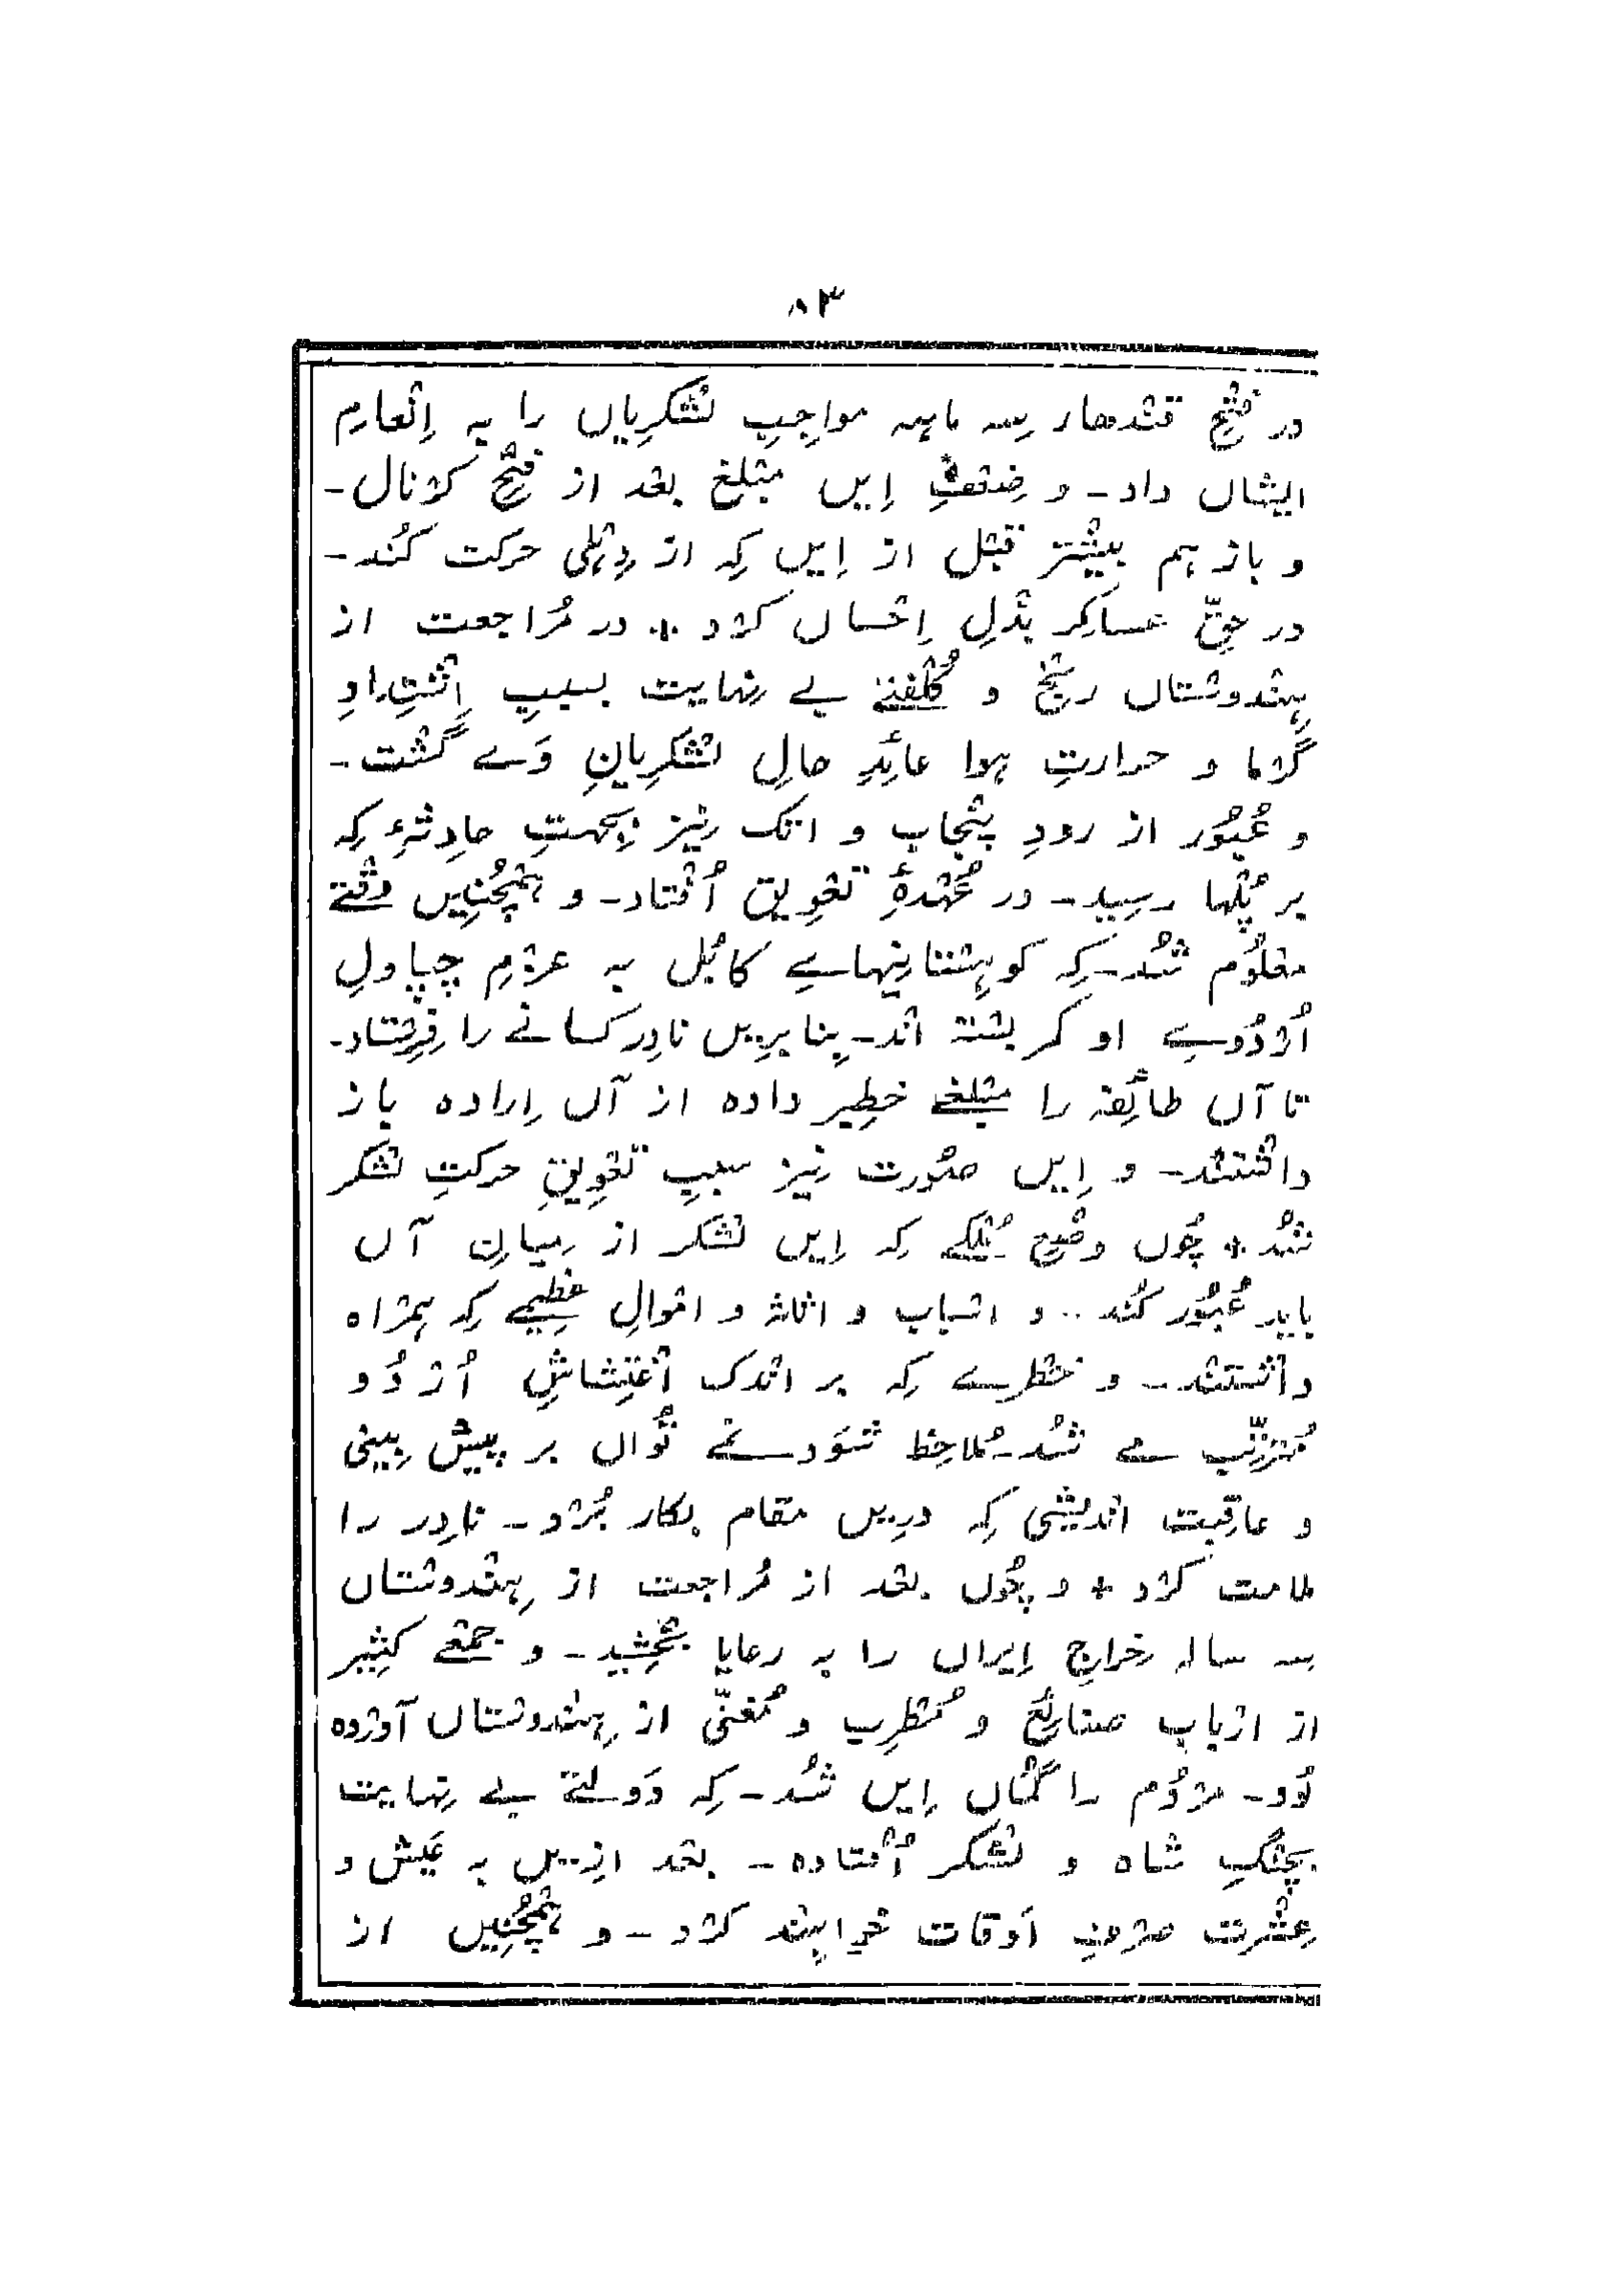 ۸۳
در فتْحِ قنْدهار سِہ ماہہ مواجِبِ لشْکرِیاں را بہ اِنْعامِ
ایشاں داد۔ و ضِعْفِ اِیں مبْلغ بعْد از فتْحِ کرْنال۔
و باز ہم بیشْتر قبْل از اِیں کِہ از دِہْلی حرکت کُند۔
در حقِّ عساکِر بذْلِ اِحْسان کرْد + در مُراجعت از
ہِنْدوسْتاں رنْج و کُلْفتے بے نِہایت بسببِ اِشْتِدادِ
گرْما و حرارتِ ہوا عائدِ حالِ لشْکرِیانِ وَے گشْت۔
و عُبُور از رودِ پنْجاب و اتک نِیز بِجہتِ حادِثۂِ کِہ
بر پُلْہا رسِید۔ در عُہْدۂِ تعْوِیق اُفْتاد۔ و ہمْچُنِیں وقْتے
معْلُوم شُد۔ کِہ کوہِسْتانِیہاے کابُل بہ عزْمِ چپاولِ
اُرْدُوے او کمر بسْتہ انْد۔ بِنا برِیں نادِر کسانے را فِرِسْتاد۔
تا آں طائفہ را مبْلغے خطِیر داده از آں اِراده باز
داشْتنْد۔ و اِیں صُورت نِیز سببِ تعْوِیقِ حرکتِ لشْکر
شُد + چُوں وضْعِ مُلْکے کِہ اِیں لشْکر از مِیانِ آں
باید عُبُور کُند۔ و اسْباب و اثاثہ و امْوالِ عظِیمے کِہ ہمْراه
داشْتنْد۔ و خطرے کِہ بر انْدک اغْتِشاشِ اُرْدُو
مُترتِّب مے شُد۔ مُلاحظہ شَود۔ نے تُواں بر پیش بِینی
و عاقِبت انْدیشی کِہ درِیں مقام بکار بُرْد۔ نادِر را
ملامت کرْد + و چُوں بعْد از مُراجعت از ہِنْدوسْتاں
سِہ سالہ خراجِ اِیراں را بہ رعایا بخْشِید۔ و جمْعے کثِیر
از ارْبابِ صنائع و مُطْرِب و مُغنّی از ہِنْدوسْتاں آوُرْده
بُود۔ مرْدُم را گُماں اِیں شُد۔ کِہ دَولتے بے نِہایت
بچنْگِ شاه و لشْکر اُفْتاده۔ بعْد ازِیں بہ عَیش و
عِشْرت صرْفِ اَوقات خواہنْد کرْد۔ و ہمْچُنِیں از